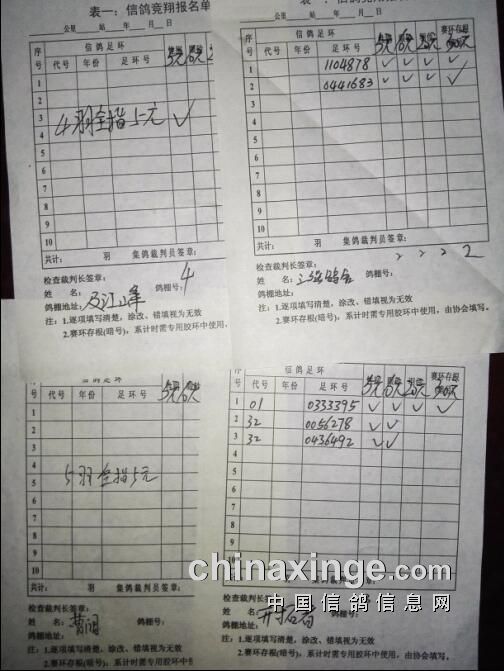 表一：信鸽竞翔报名单
公里 站 年 月 日
序号 信鸽足环
代号 年份 足环号
1
2
3
4
4羽全指5元 ✓
5
6
7
8
9
10
共计： 羽 集鸽裁判员签章：
检查裁判长签章：
姓 名： 鸽棚号： 4
鸽棚地址：
注：1.逐项填写清楚，涂改、错填视为无效
2.赛环存根(暗号)，系计时需专用胶环中使用，
公里 站 年 月 日
序号 信鸽足环 赛环存根
代号 年份 足环号
1 1104878 ✓ ✓ ✓ ✓
2 0441683 ✓ ✓ ✓ ✓
3
4
5
6
7
8
9
10
共计： 羽 集鸽裁判员签章：
2 2 2 2
检查裁判长签章：
姓 名： 鸽棚号：
鸽棚地址：
注：1.逐项填写清楚，涂改、错填视为无效
2.赛环存根(暗号)，系计时需专用胶环中使用，由协会填写。
序号 信鸽足环
代号 年份 足环号
1
2
3
4
5羽全指5元
5
6
7
8
9
10
共计： 羽 集鸽裁判员签章：
检查裁判长签章：
姓 名： 鸽棚号：
鸽棚地址：
注：1.逐项填写清楚，涂改、错填视为无效
2.赛环存根(暗号)，系计时需专用胶环
序号 信鸽足环 赛环存根
代号 年份 足环号
1 01 0333395 ✓ ✓ ✓ ✓
2 32 0056278 ✓ ✓
3 32 0436492 ✓ ✓
4
5
6
7
8
9
10
共计： 羽 集鸽裁判员签章：
检查裁判长签章：
姓 名： 开拓者 鸽棚号：
鸽棚地址：
注：1.逐项填写清楚，涂改、错填视为无效
2.赛环存根(暗号)，系计时需专用胶环中使用，由协会填写。
chinaxinge.com
中国信鸽信息网